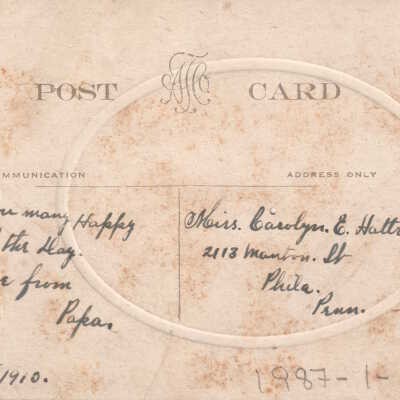 POST CARD
MMUNICATION
ADDRESS ONLY
many Happy
the Day.
from
Papa.
1910.
Miss. Carolyn. E. Hattr
2113 Manton. St
Phila.
Penn.
1987-1-